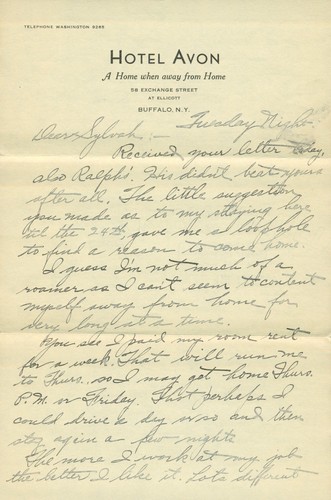 TELEPHONE WASHINGTON 6285
HOTEL AVON
A Home when away from Home
58 EXCHANGE STREET
AT ELLICOTT
BUFFALO, N.Y.
Tuesday Night:
Dear Sylvah:-
Received your letter today,
also Ralphs'. His didn't beat yours
after all. The little suggestion
you made as to my staying here
til the 24th, gave me a loophole
to find a reason to come home.
I guess I'm not much of a
roamer as I can't seem to content
myself away from home for
very long at a time.
You see I paid my room rent
for a week. That will run me
to Thurs. so I may get home Thurs.
P.M. or Friday. Tho't perhaps I
could drive a day or so and then
stay again a few nights
The more I work at my job
the better I like it. Lots different